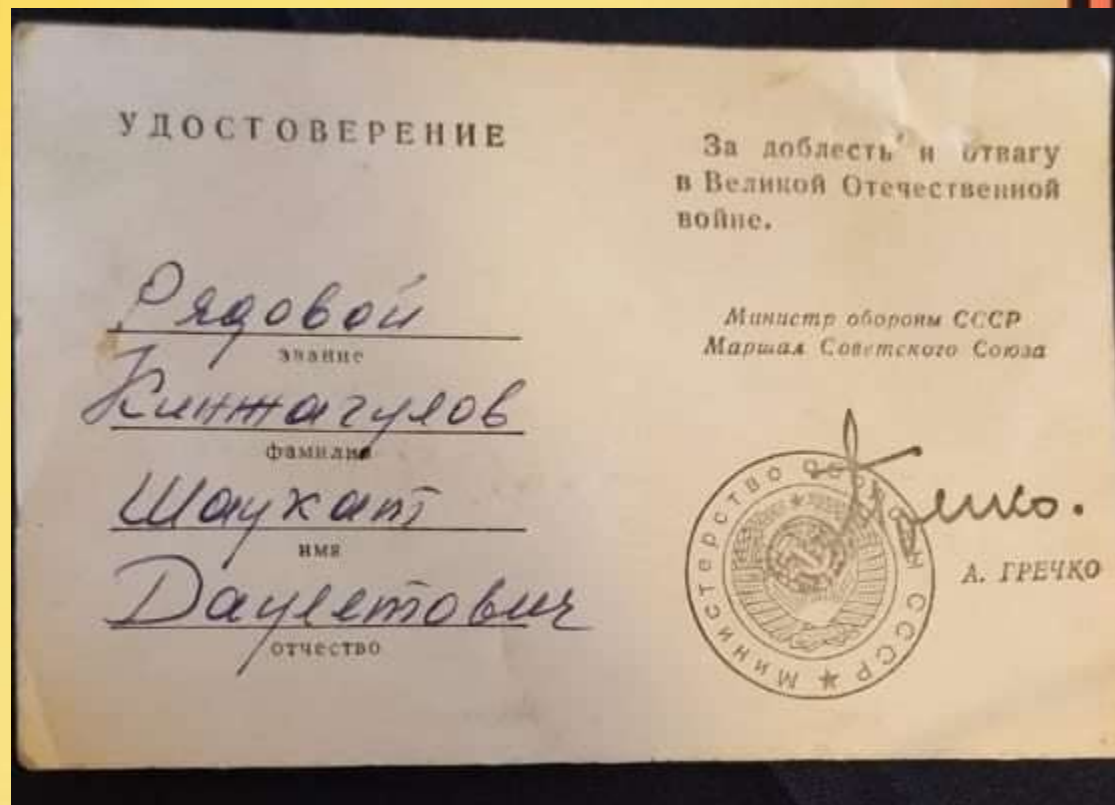 УДОСТОВЕРЕНИЕ
Рядовой
звание
Кинжагулов
фамилия
Шаукат
имя
Даулетович
отчество
За доблесть и отвагу
в Великой Отечественной
войне.
Министр обороны СССР
Маршал Советского Союза
МИНИСТЕРСТВО ОБОРОНЫ СССР
А. ГРЕЧКО